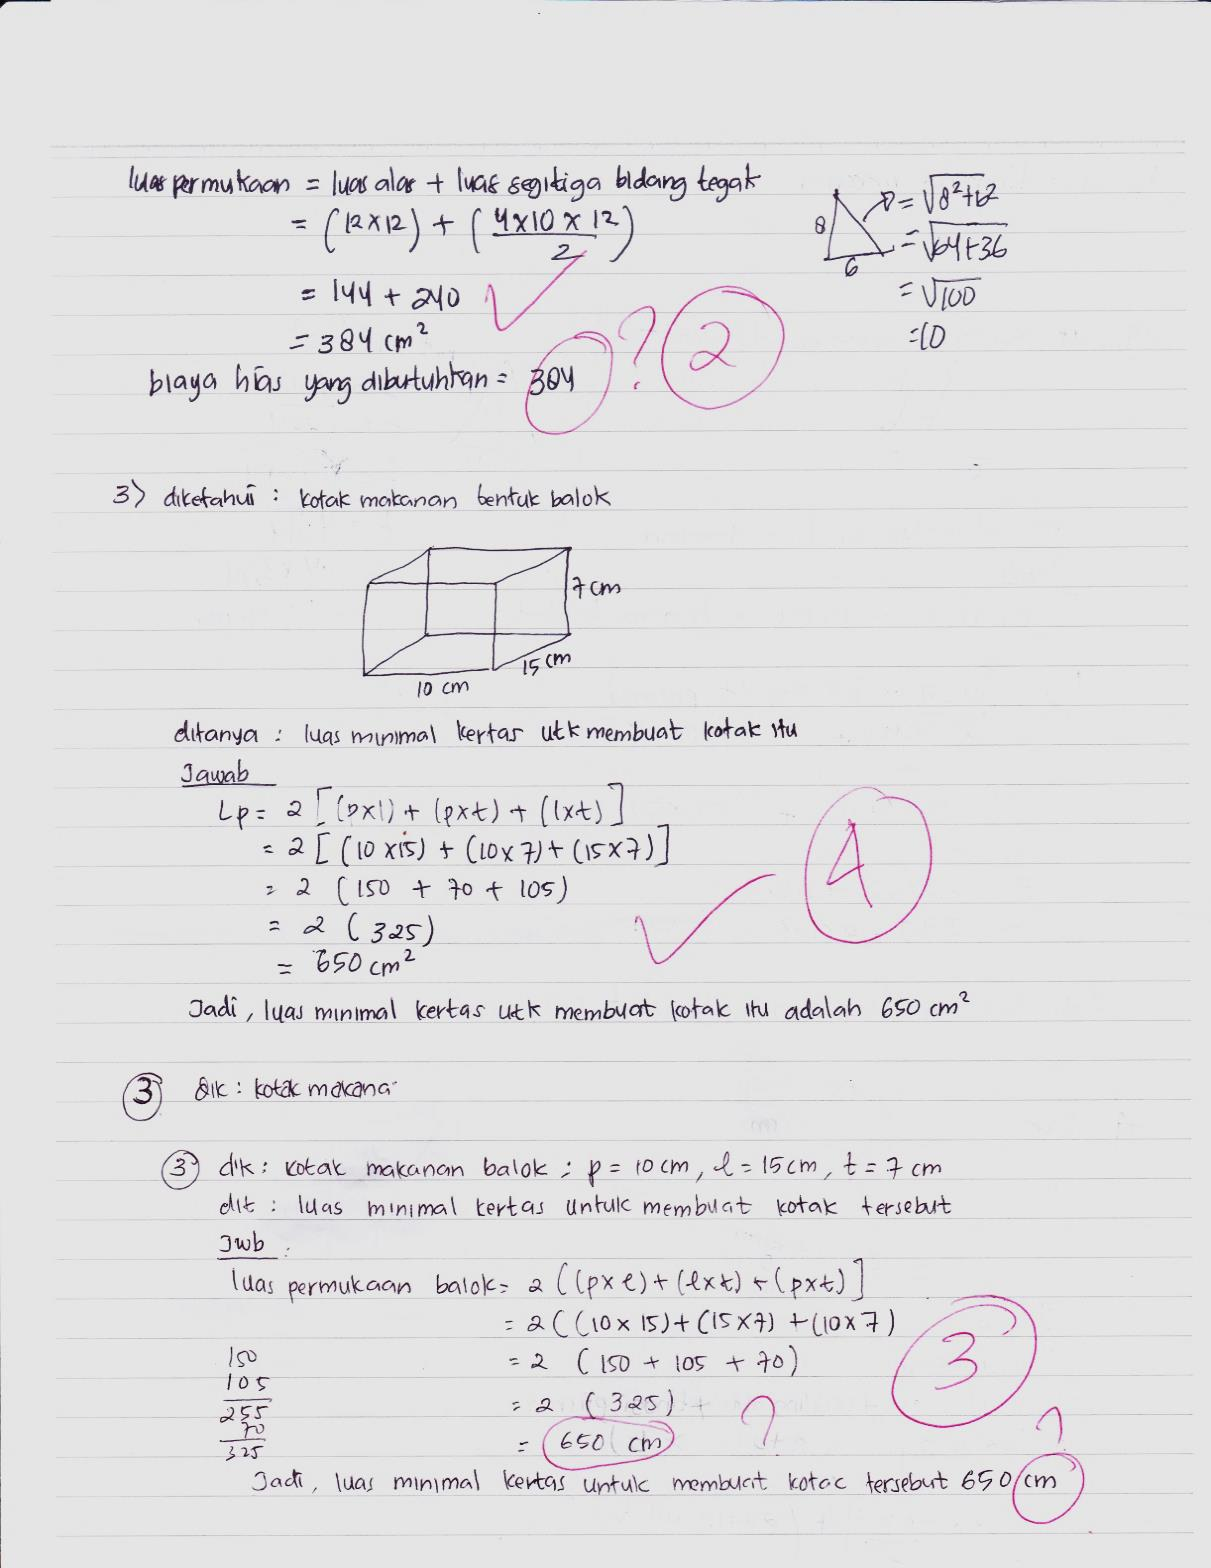 luas permukaan = luas alas + luas segitiga bidang tegak
= (12 x 12) + (4 x 10 x 12 / 2)
= 144 + 240
= 384 cm²
biaya hias yang dibutuhkan = 384 ?
2
8
6
= √8²+6²
= √64+36
= √100
= 10
3) diketahui : kotak makanan bentuk balok
7 cm
15 cm
10 cm
ditanya : luas minimal kertas utk membuat kotak itu
Jawab
Lp = 2 [(pxl) + (pxt) + (lxt)]
= 2 [(10 x 15) + (10 x 7) + (15 x 7)]
= 2 (150 + 70 + 105)
= 2 (325)
= 650 cm²
4
Jadi, luas minimal kertas utk membuat kotak itu adalah 650 cm²
3 dik : kotak makana
3 dik : kotak makanan balok : p = 10 cm, l = 15 cm, t = 7 cm
dit : luas minimal kertas untuk membuat kotak tersebut
Jwb :
luas permukaan balok = 2 ((pxl) + (lxt) + (pxt)]
= 2 ((10 x 15) + (15 x 7) + (10 x 7)
= 2 (150 + 105 + 70)
= 2 (325)
= 650 cm ?
3
150
105
255
70
325
Jadi, luas minimal kertas untuk membuat kotac tersebut 650 cm ?